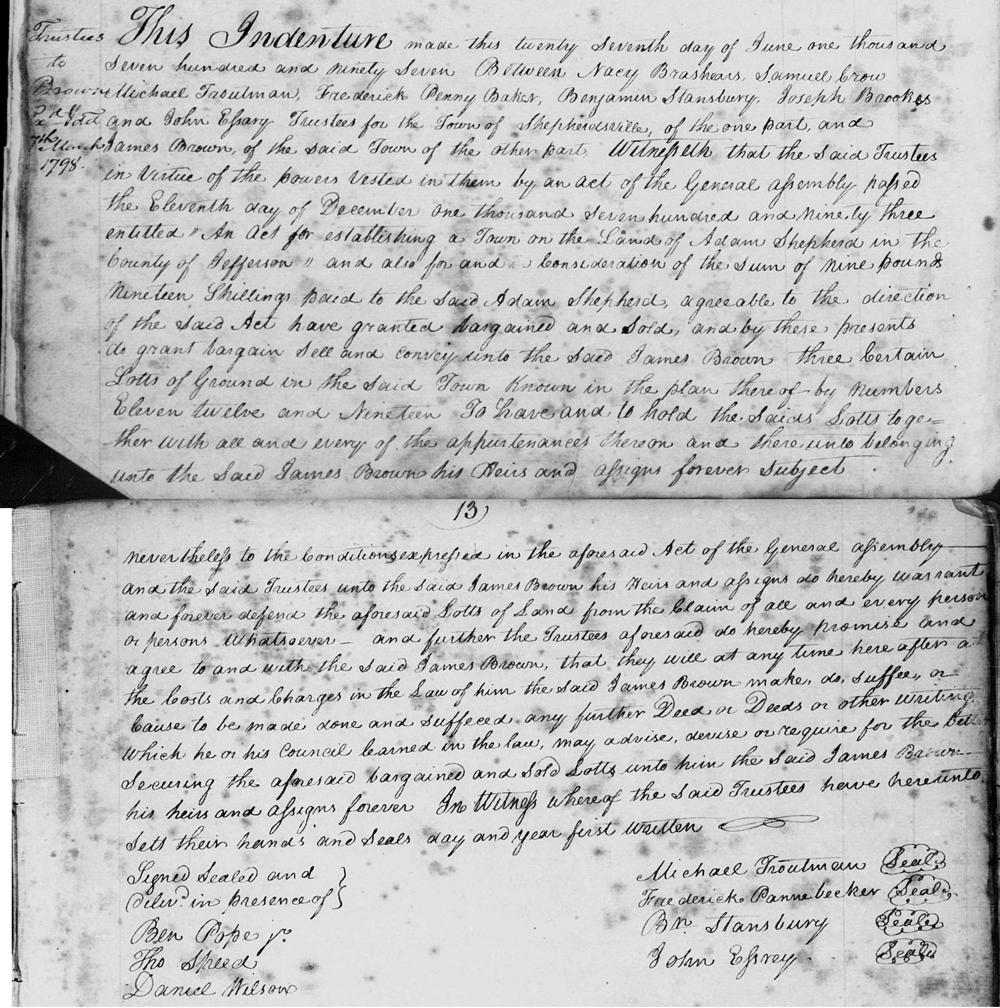 Trustees
to
Brown
3 d
a
7th March
1798.
This Indenture made this twenty Seventh day of June one thousand
Seven hundred and ninety Seven Between Nacy Brashears, Samuel Crow
Michael Troutman, Frederick Penny Baker, Benjamin Stansbury, Joseph Brookes
and John Essary Trustees for the Town of Shepherdsville, of the one part, and
James Brown, of the said Town of the other part Witnesseth that the Said Trustees
in virtue of the powers vested in them by an act of the General assembly passed
the Eleventh day of December one thousand Seven hundred and ninety three
entitled "An Act for establishing a Town on the Land of Adam Shepherd in the
County of Jefferson" and also for and Consideration of the Sum of Nine pounds
Nineteen Shillings paid to the said Adam Shepherd, agreeable to the direction
of the Said Act have granted bargained and Sold, and by these presents
do grant bargain Sell and convey unto the Said James Brown three Certain
Lotts of Ground in the Said Town Known in the plan thereof by numbers
Eleven twelve and Nineteen To have and to hold the Saids Lotts toge=
ther with all and every of the appurtenances thereon and there unto belonging
unto the Said James Brown his Heirs and assigns forever Subject
13
nevertheless to the Conditions expressed in the aforesaid Act of the General assembly
and the said Trustees unto the said James Brown his Heirs and assigns do hereby warrant
and forever defend the aforesaid Lotts of Land from the Claim of all and every person
or persons Whatsoever – and further the Trustees aforesaid do hereby promise and
agree to and with the said James Brown, that they will at any time here after a
the Costs and Charges in the Law of him the said James Brown make, do, suffer, or
Cause to be made done and suffeced any further Deed or Deeds or other writing
Which he or his Council learned in the law, may advise, devise or require for the bet
Securing the aforesaid bargained and Sold Lotts unto him the Said James Brown
his heirs and assigns forever In Witness whereof the Said Trustees have hereunto
Sett their hands and Seals day and year first written
Signed Sealed and
deliv.d in presence of }
Michael Troutman Seal
Frederick Pannebecker Seal
Ben Pope jr.
Bn Stansbury Seal
Tho Speed
John Essrey. Seal
Daniel Wilson